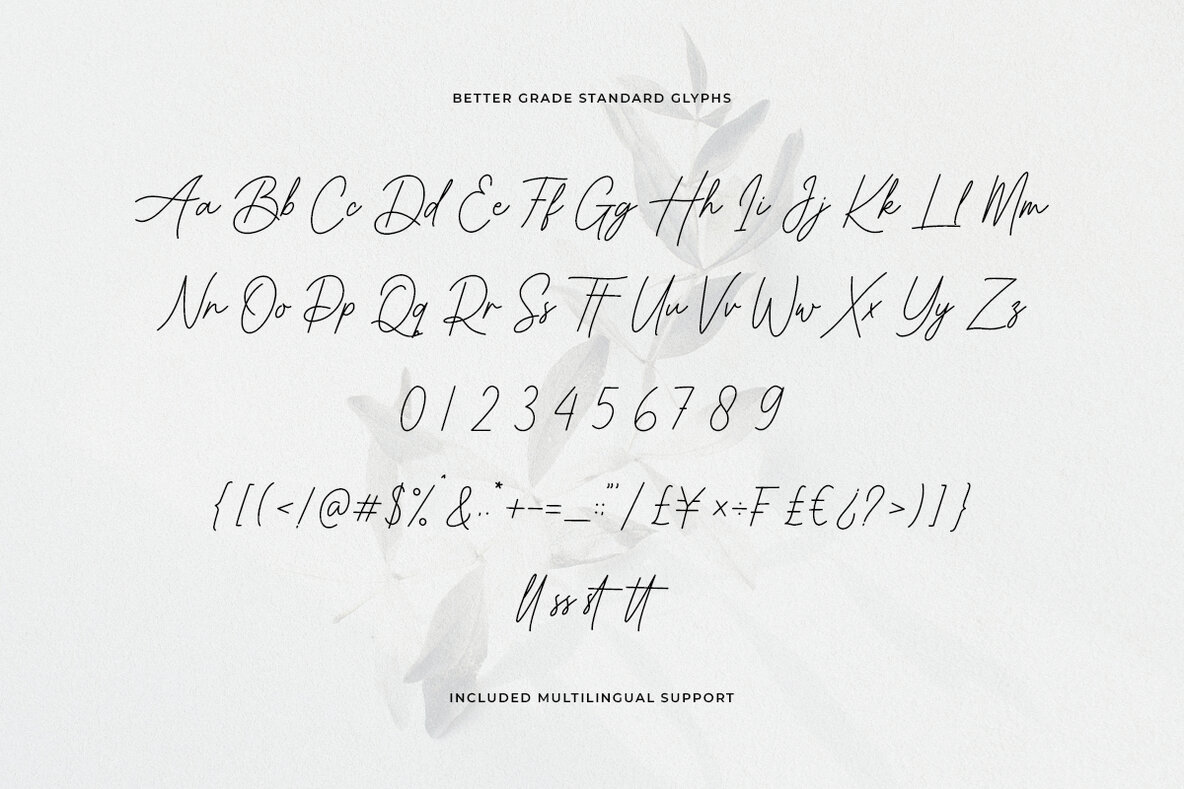 BETTER GRADE STANDARD GLYPHS
Aa Bb Cc Dd Ee Ff Gg Hh Ii Jj Kk Ll Mm
Nn Oo Pp Qq Rr Ss Tt Uu Vv Ww Xx Yy Zz
0 1 2 3 4 5 6 7 8 9
{ [ ( < ! @ # $ % ^ & , . * + - = _ : ; " ' / £ ¥ × ÷ ₣ £ € ¿ ? > ) ] }
ll ss st tt
INCLUDED MULTILINGUAL SUPPORT